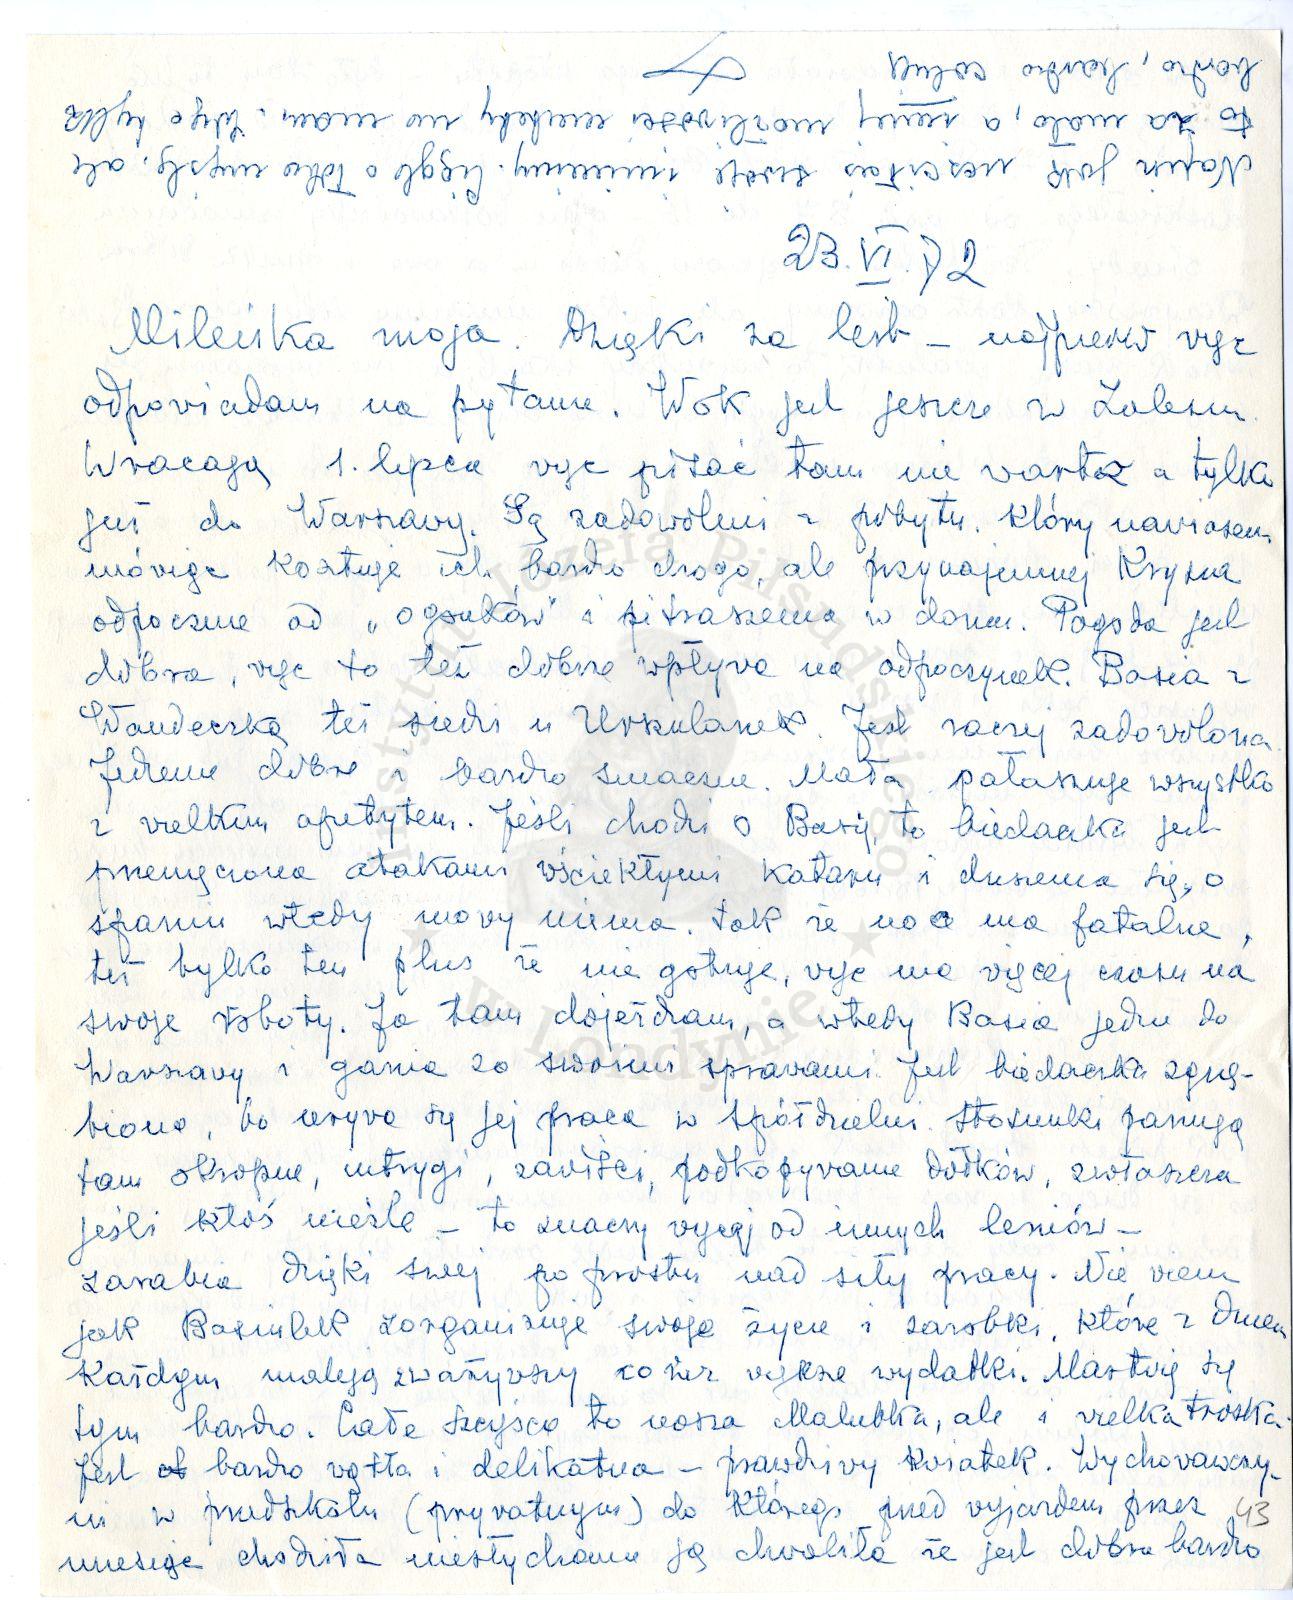 bardzo, bardzo całuję
to za mało, a innej możliwości niestety nie mam. Więc tylko
jak uściskać imieniny. Ciągle o Tobie myślę, ale
23.VI.72
Mileńka moja. Dzięki za list – najpierw więc
odpowiadam na pytanie. Wok jest jeszcze w Zalesiu.
Wracają 1. lipca więc pisać tam nie warto a tylko
już do Warszawy. Są zadowoleni z pobytu, który nawiasem
mówiąc kosztuje ich bardzo drogo, ale przynajmniej Krysia
odpocznie od „ogonków" i pitraszenia w domu. Pogoda jest
dobra, więc to też dobrze wpływa na odpoczynek. Basia z
Wandeczką też siedzi u Urszulanek. Jest raczej zadowolona.
Jedzenie dobre i bardzo smaczne. Mała pałaszuje wszystko
z wielkim apetytem. Jeśli chodzi o Basię, to biedaczka jest
przemęczona atakami wściekłymi kataru i duszenia się, o
spaniu wtedy mowy niema. Tak że noce ma fatalne,
też tylko ten plus że nie gotuje, więc ma więcej czasu na
swoje roboty. Ja tam dojeżdżam, a wtedy Basia jedzie do
Warszawy i gania za swoimi sprawami. Jest biedaczka zgnę-
biona, bo urywa się jej praca w spółdzielni. Stosunki panują
tam okropne, intrygi, zawiści, podkopywanie dołków, zwłaszcza
jeśli ktoś nieźle – to znaczy więcej od innych leniów –
zarabia dzięki swej po prostu nad siły pracy. Nie wiem
jak Basiulek zorganizuje swoje życie i zarobki, które z dniem
każdym maleją zważywszy coraz większe wydatki. Martwię się
tym bardzo. Całe szczęście to nasza Malutka, ale i wielka troska.
Jest bardzo wątła i delikatna – prawdziwy kwiatek. Wychowawczy-
ni w przedszkolu (prywatnym) do którego przed wyjazdem przez
miesiąc chodziła niesłychanie ją chwaliła że jest dobra bardzo
43
Instytut Józefa Piłsudskiego
w Londynie